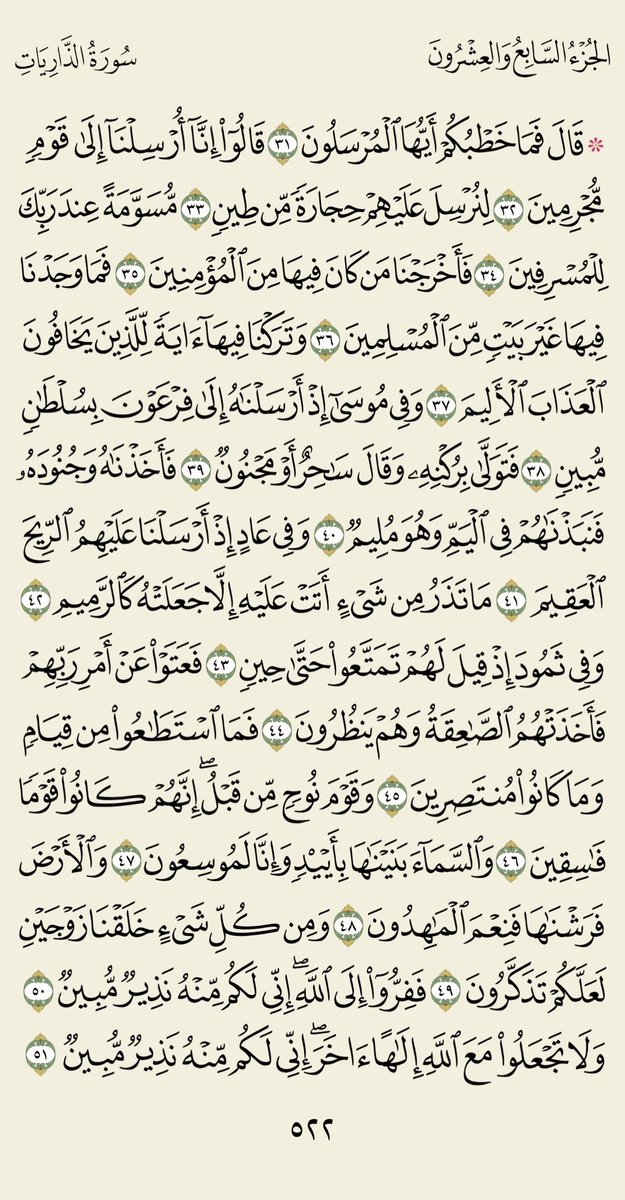 الجُزْءُ السَّابِعُ وَالعِشْرُونَ
سُورَةُ الذَّارِيَاتِ
* قَالَ فَمَا خَطْبُكُمْ أَيُّهَا ٱلْمُرْسَلُونَ ٣١ قَالُوٓا۟ إِنَّآ أُرْسِلْنَآ إِلَىٰ قَوْمٍ
مُّجْرِمِينَ ٣٢ لِنُرْسِلَ عَلَيْهِمْ حِجَارَةً مِّن طِينٍ ٣٣ مُّسَوَّمَةً عِندَ رَبِّكَ
لِلْمُسْرِفِينَ ٣٤ فَأَخْرَجْنَا مَن كَانَ فِيهَا مِنَ ٱلْمُؤْمِنِينَ ٣٥ فَمَا وَجَدْنَا
فِيهَا غَيْرَ بَيْتٍ مِّنَ ٱلْمُسْلِمِينَ ٣٦ وَتَرَكْنَا فِيهَآ ءَايَةً لِّلَّذِينَ يَخَافُونَ
ٱلْعَذَابَ ٱلْأَلِيمَ ٣٧ وَفِى مُوسَىٰٓ إِذْ أَرْسَلْنَٰهُ إِلَىٰ فِرْعَوْنَ بِسُلْطَٰنٍ
مُّبِينٍ ٣٨ فَتَوَلَّىٰ بِرُكْنِهِۦ وَقَالَ سَٰحِرٌ أَوْ مَجْنُونٌ ٣٩ فَأَخَذْنَٰهُ وَجُنُودَهُۥ
فَنَبَذْنَٰهُمْ فِى ٱلْيَمِّ وَهُوَ مُلِيمٌ ٤٠ وَفِى عَادٍ إِذْ أَرْسَلْنَا عَلَيْهِمُ ٱلرِّيحَ
ٱلْعَقِيمَ ٤١ مَا تَذَرُ مِن شَىْءٍ أَتَتْ عَلَيْهِ إِلَّا جَعَلَتْهُ كَٱلرَّمِيمِ ٤٢
وَفِى ثَمُودَ إِذْ قِيلَ لَهُمْ تَمَتَّعُوا۟ حَتَّىٰ حِينٍ ٤٣ فَعَتَوْا۟ عَنْ أَمْرِ رَبِّهِمْ
فَأَخَذَتْهُمُ ٱلصَّٰعِقَةُ وَهُمْ يَنظُرُونَ ٤٤ فَمَا ٱسْتَطَٰعُوا۟ مِن قِيَامٍ
وَمَا كَانُوا۟ مُنتَصِرِينَ ٤٥ وَقَوْمَ نُوحٍ مِّن قَبْلُ ۖ إِنَّهُمْ كَانُوا۟ قَوْمًا
فَٰسِقِينَ ٤٦ وَٱلسَّمَآءَ بَنَيْنَٰهَا بِأَيْي۟دٍ وَإِنَّا لَمُوسِعُونَ ٤٧ وَٱلْأَرْضَ
فَرَشْنَٰهَا فَنِعْمَ ٱلْمَٰهِدُونَ ٤٨ وَمِن كُلِّ شَىْءٍ خَلَقْنَا زَوْجَيْنِ
لَعَلَّكُمْ تَذَكَّرُونَ ٤٩ فَفِرُّوٓا۟ إِلَى ٱللَّهِ ۖ إِنِّى لَكُم مِّنْهُ نَذِيرٌ مُّبِينٌ ٥٠
وَلَا تَجْعَلُوا۟ مَعَ ٱللَّهِ إِلَٰهًا ءَاخَرَ ۖ إِنِّى لَكُم مِّنْهُ نَذِيرٌ مُّبِينٌ ٥١
٥٢٢